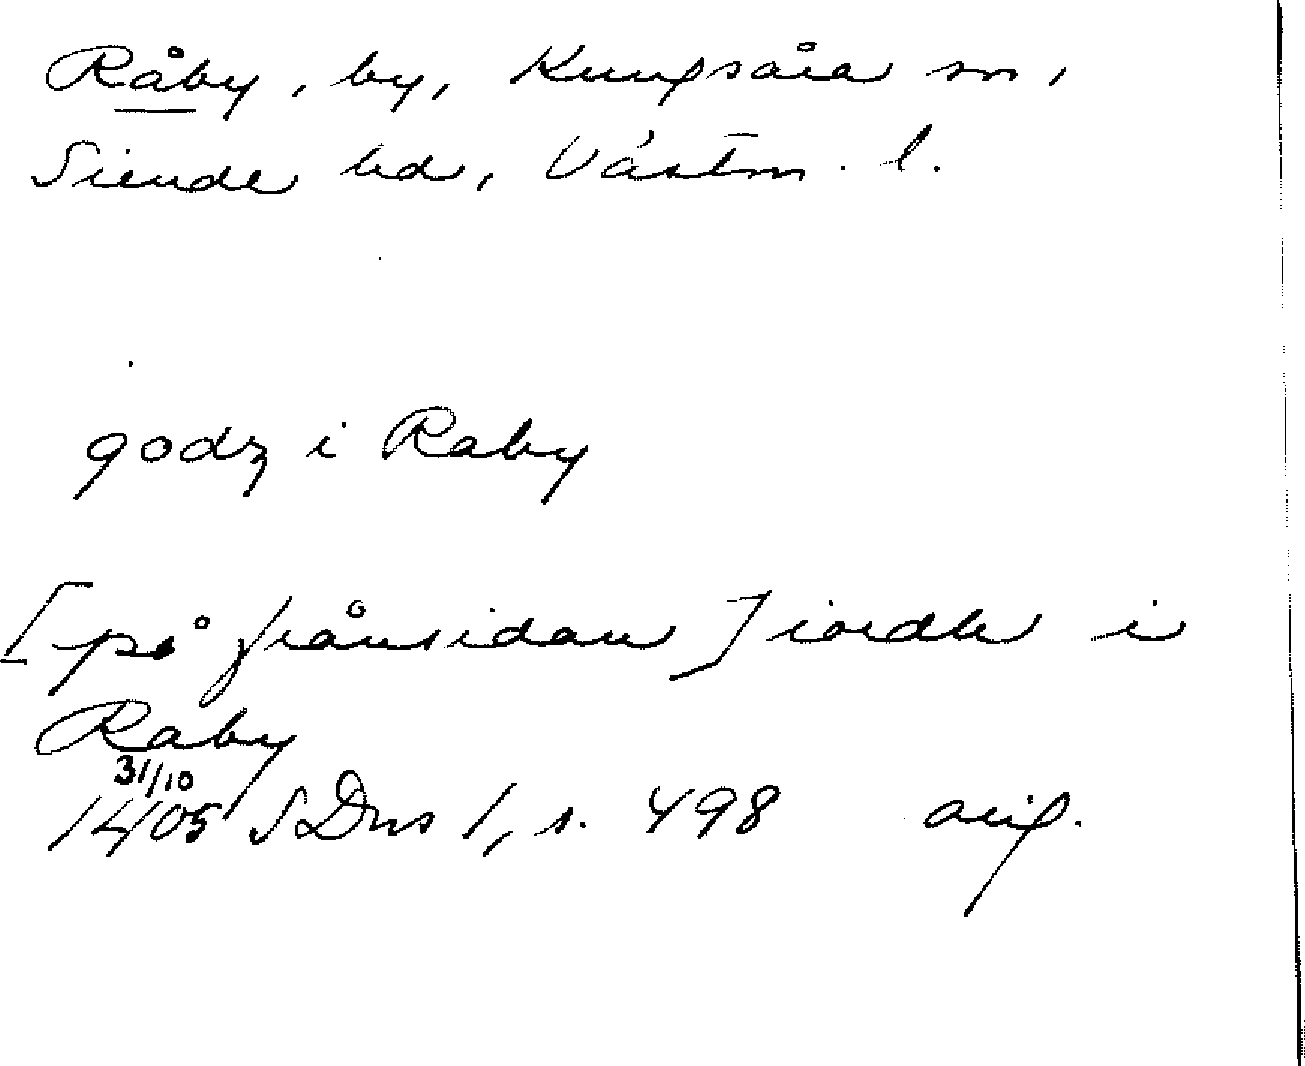 Råby, by, Kungsåra sn,
Siende hd, Västm. l.
godz i Raby
[på frånsidan] iordh i
Raby
31/10
1405 SDns 1, s. 498 orig.